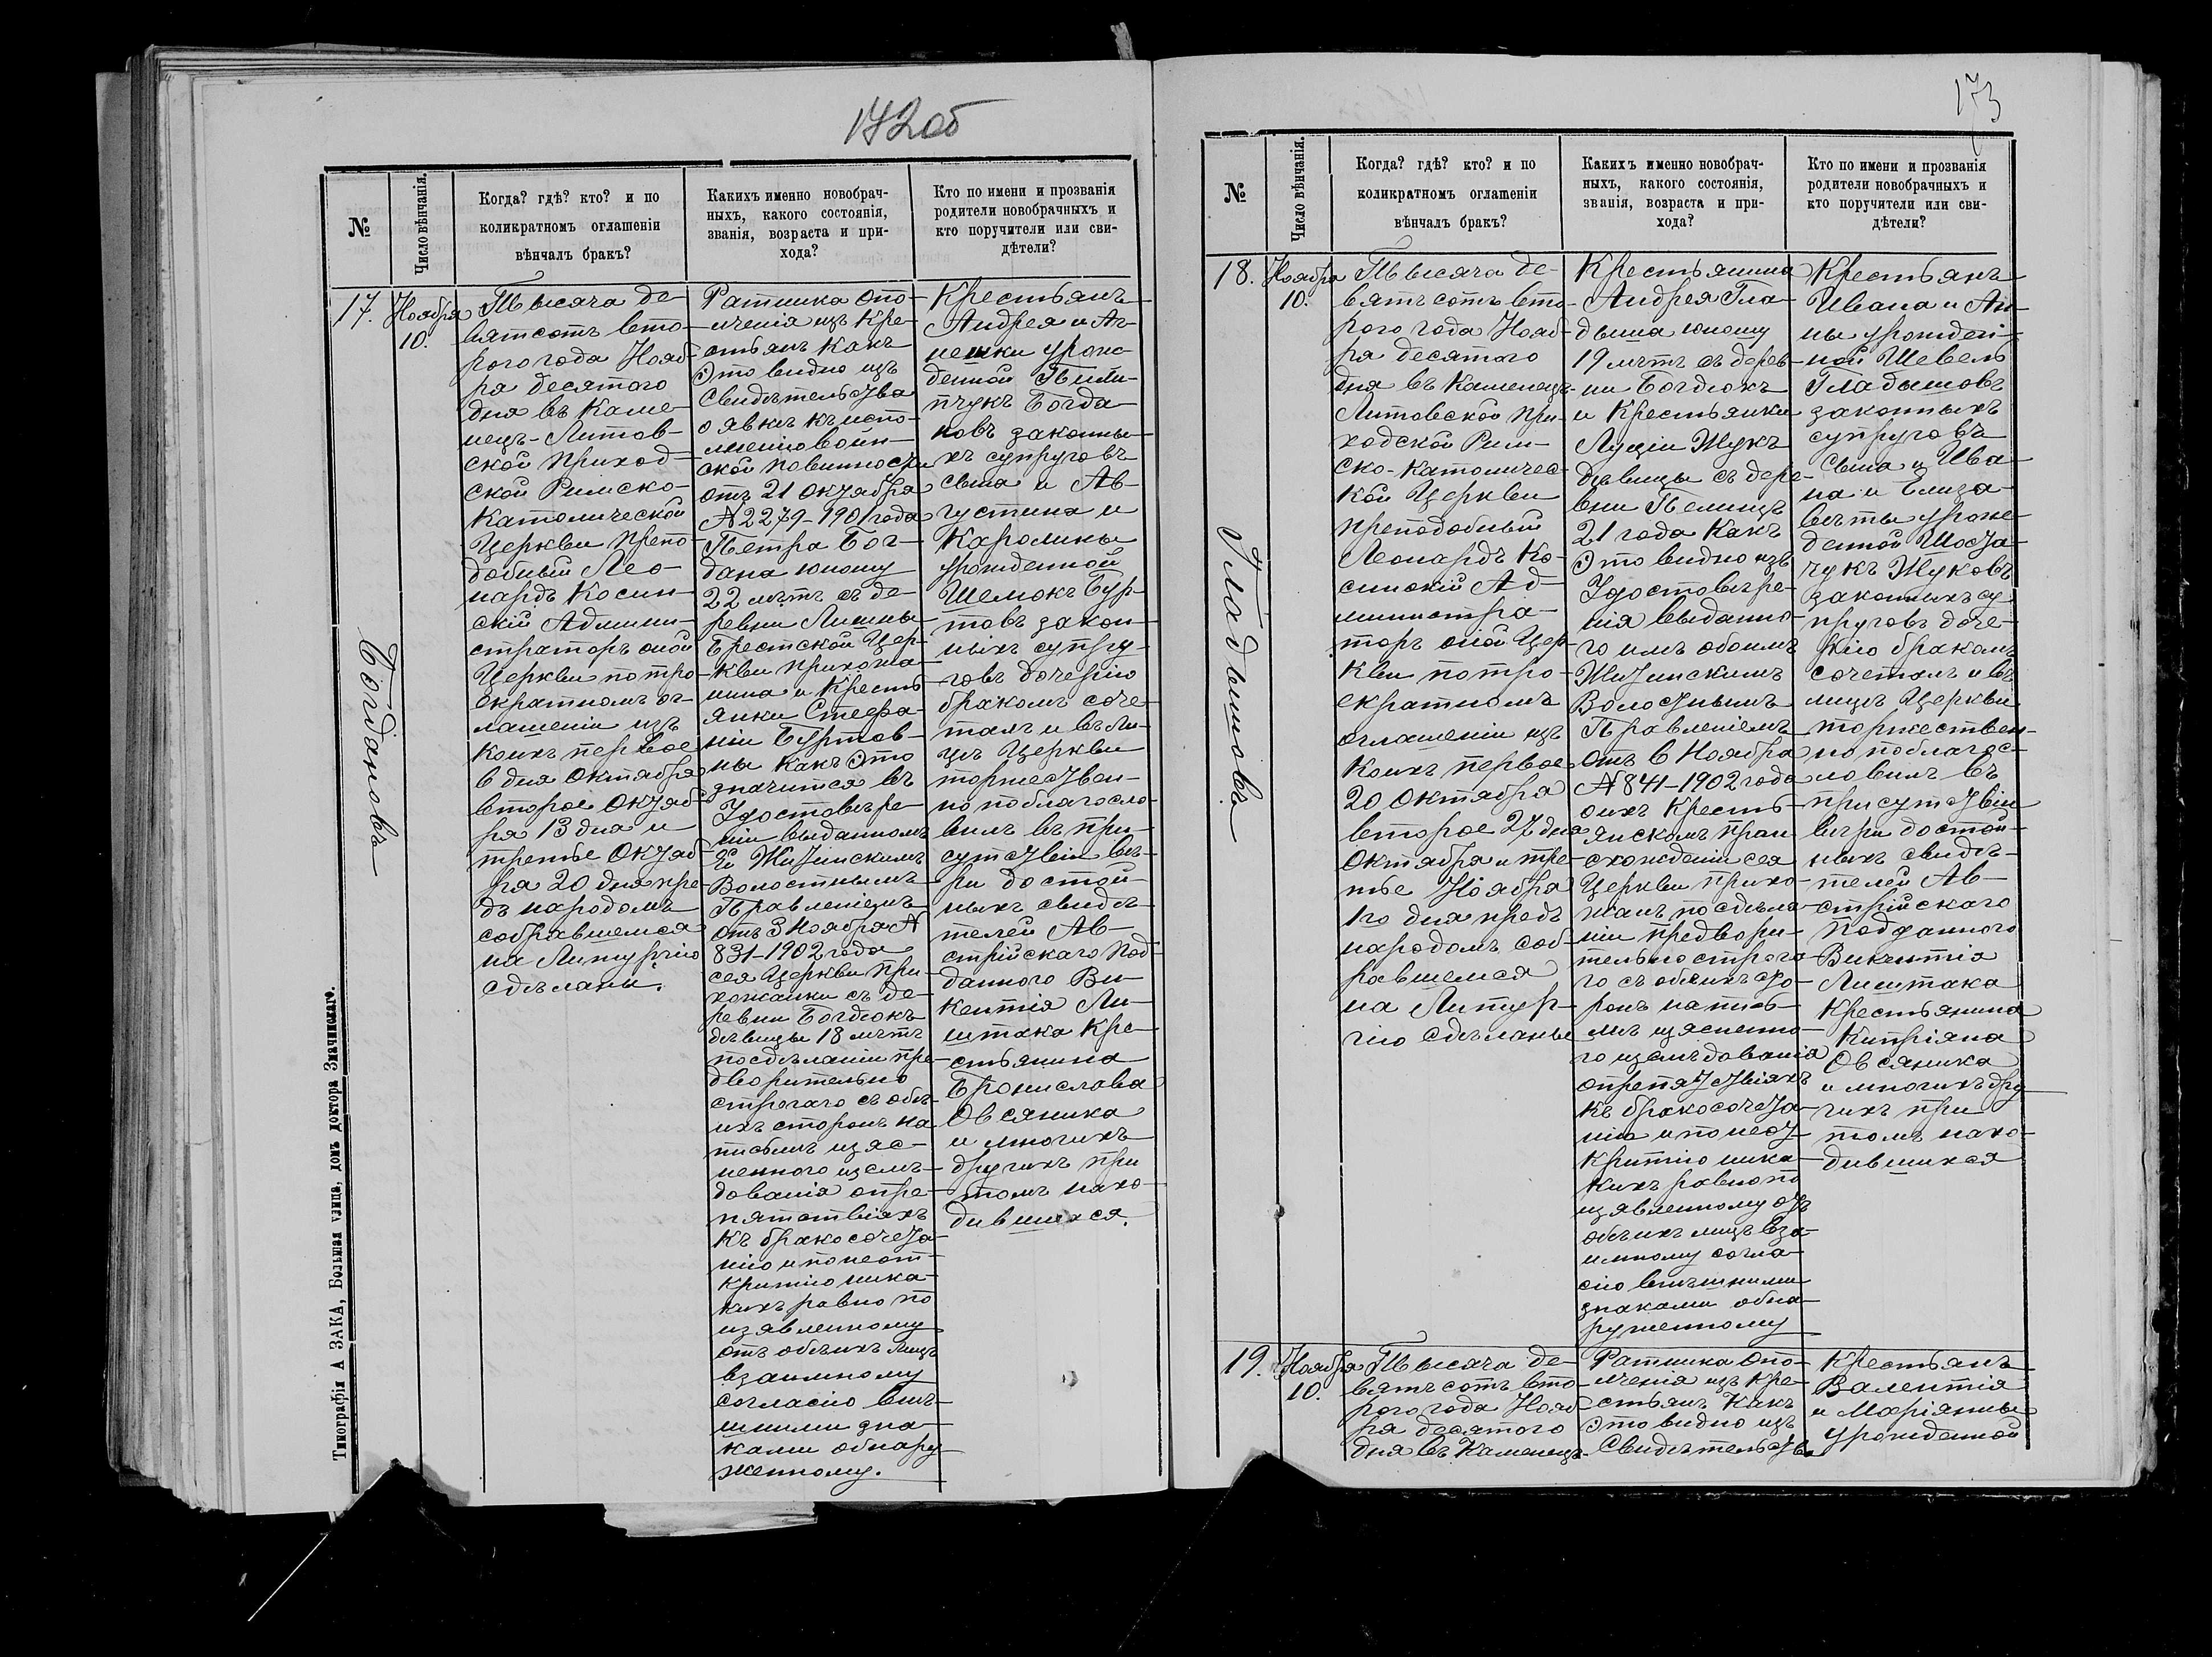 172 об
№
Число вѣнчанія.
Когда? гдѣ? кто? и по
коликратномъ оглашеніи
вѣнчалъ бракъ?
Какихъ именно новобрач-
ныхъ, какого состоянія,
званія, возраста и при-
хода?
Кто по имени и прозванія
родители новобрачныхъ и
кто поручители или сви-
дѣтели?
17.
Ноября
10.
Богдановъ
Тысяча де-
вятсотъ вто-
рого года Нояб-
ря десятого
дня въ Каме-
нецъ-Литов-
ской приход-
ской Римско-
Католической
Церкви препо-
добный Лео-
нардъ Косин-
скій Админи-
страторъ оной
Церкви по тро-
екратномъ ог-
лашеніи изъ
коихъ первое
6 дня Октября
второе Октяб-
ря 13 дня и
третье Октяб-
ря 20 дня пре-
дъ народомъ
собравшемся
на Литургію
сдѣланы.
Ратника опо-
лченія изъ Кре-
стьянъ Какъ
это видно изъ
Свидѣтельства
о явкѣ къ испо-
лненію воин-
ской повинности
отъ 21 Октября
№ 2279-1901 года
Петра Бог-
дана юношу
22 лѣтъ съ де-
ревни Лишны
Брестской Цер-
кви прихожа-
нина и Кресть-
янки Стефа-
ніи Буртов-
ны Какъ это
значится въ
Удостовѣре-
ніи выданномъ
ей Житинскимъ
Волостнымъ
Правленіемъ
отъ 3 Ноября №
831-1902 года
сея Церкви при-
хожанки съ де-
ревни Богдюкъ
дѣвицы 18 лѣтъ
по сдѣланіи пре-
дворительно
строгаго съ обѣ-
ихъ сторонъ на
письмѣ изяс-
неннаго изслѣ-
дованія о пре-
пятствіяхъ
къ бракосочета-
нію и по неот-
крытію ника-
кихъ равно по
изявленному
отъ обѣихъ лицъ
взаимному
согласію внѣ-
шними зна-
ками обнару-
женному.
Крестьянъ
Андрея и Аг-
нешки урож-
денной Пили-
пчукъ Богда-
новъ законны-
хъ супруговъ
сына и Ав-
густина и
Каролины
урожденной
Шемокъ Бур-
товъ закон-
ныхъ супру-
говъ дочерію
бракомъ соче-
талъ и въ ли-
цѣ Церкви
торжествен-
но поблагосло-
вилъ въ при-
сутствіи вѣ-
ри достой-
ныхъ свидѣ-
телей Ав-
стрійскаго Под-
данного Ви-
кентія Ли-
штака Кре-
стьянина
Бронислава
Овсяника
и многихъ
другихъ при
томъ нахо-
дившихся.
Типографія А ЗАКА, Большая улица, домъ доктора Значинскаго.
173
№
Число вѣнчанія.
Когда? гдѣ? кто? и по
коликратномъ оглашеніи
вѣнчалъ бракъ?
Какихъ именно новобрач-
ныхъ, какого состоянія,
званія, возраста и при-
хода?
Кто по имени и прозванія
родители новобрачныхъ и
кто поручители или сви-
дѣтели?
18.
Ноября
10.
Гладышовъ
Тысяча де-
вятьсотъ вто-
рого года Нояб-
ря десятого
дня въ Каменецъ-
Литовской При-
ходской Рим-
ско-Католичес-
кой Церкви
преподобный
Леонардъ Ко-
синскій Ад-
министра-
торъ оной Цер-
кви по тро-
екратномъ
оглашеніи изъ
коихъ первое
20 Октября
второе 27 дня
Октября и тре-
тье Ноября
1го дня предъ
народомъ соб-
равшемся
на Литур-
гію сдѣланы
Крестьянина
Андрея Гла-
дыша юношу
19 лѣтъ съ дерев-
ни Богдюкъ
и Крестьянки
Луціи Жукъ
дѣвицы съ дере-
вни Пелищъ
21 года Какъ
это видно изъ
Удостовѣре-
нія выданно-
го имъ обоимъ
Житинскимъ
Волостнымъ
Правленіемъ
отъ 6 Ноября
№ 841-1902 года
оихъ Кресть-
янскомъ прои-
схожденіи сея
Церкви прихо-
жанъ по сдѣла-
ніи предвори-
тельно строга-
го съ обѣихъ сто-
ронъ на пись-
мѣ изясненно-
го изслѣдованія
о препятствіяхъ
къ бракосочета-
нію и по неот-
крытію ника-
кихъ равно по
изявленному отъ
обѣихъ лицъ вза-
имному согла-
сію внѣшними
знаками обна-
руженному
Крестьянъ
Ивана и Ан-
ны урожден-
ной Шевель
Гладышовъ
законныхъ
супруговъ
сына и Ива-
на и Елиза-
вѣты урож-
денной Шоста-
чукъ Жуковъ
законныхъ су-
пруговъ доче-
рію бракомъ
сочеталъ и въ
лицѣ Церкви
торжествен-
но поблагос-
ловилъ въ
присутствіи
вѣри достой-
ныхъ свидѣ-
телей Ав-
стрійскаго
Подданного
Викентія
Лиштака
Крестьянина
Кипріяна
Овсяника
и многихъ дру-
гихъ при
томъ нахо-
дившихся
19.
Ноября
10.
Тысяча де-
вятьсотъ вто-
рого года Нояб-
ря десятого
дня въ Каменецъ-
Ратника опо-
лченія изъ Кре-
стьянъ Какъ
это видно изъ
Свидѣтельств
Крестьянъ
Валентія
и Маріянны
урожденной